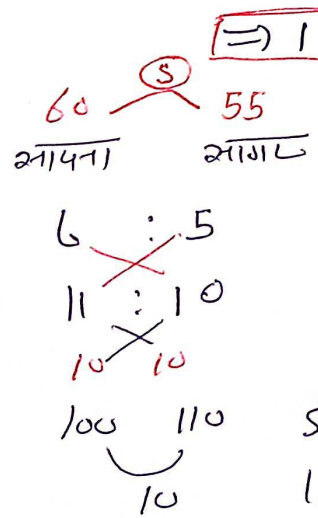 ⇒ 1
5
60 55
सापना सागर
6 : 5
11 : 10
10 10
100 110 5
10 1